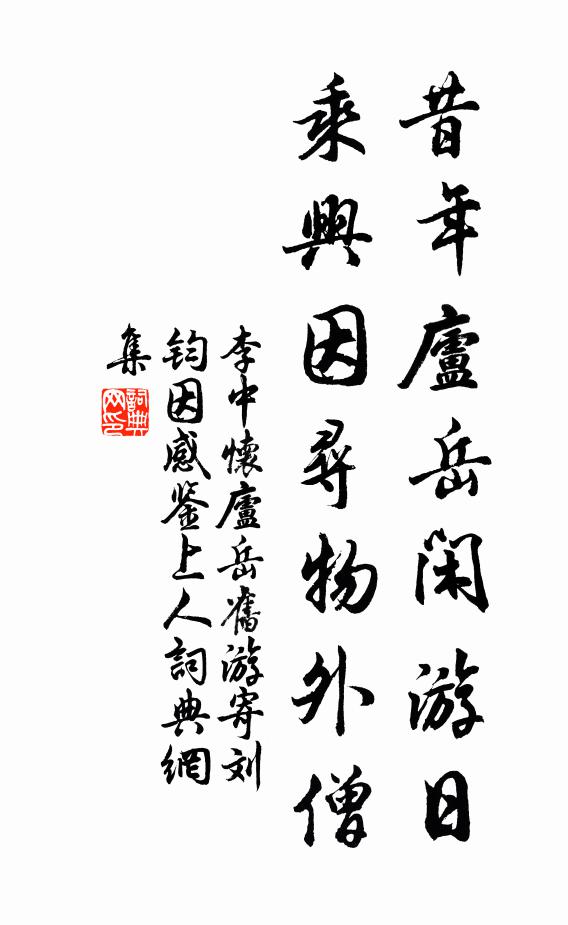 昔年廬岳閑游日
乘興因尋物外僧
李中懷廬岳舊游寄刘
鈞因感鉴上人詞典網
集
詞典
网印